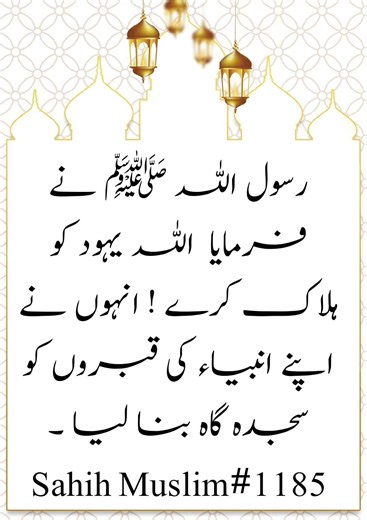 رسول اللہ ﷺ نے
فرمایا اللہ یہود کو
ہلاک کرے ! انہوں نے
اپنے انبیاء کی قبروں کو
سجدہ گاہ بنا لیا ۔
Sahih Muslim#1185